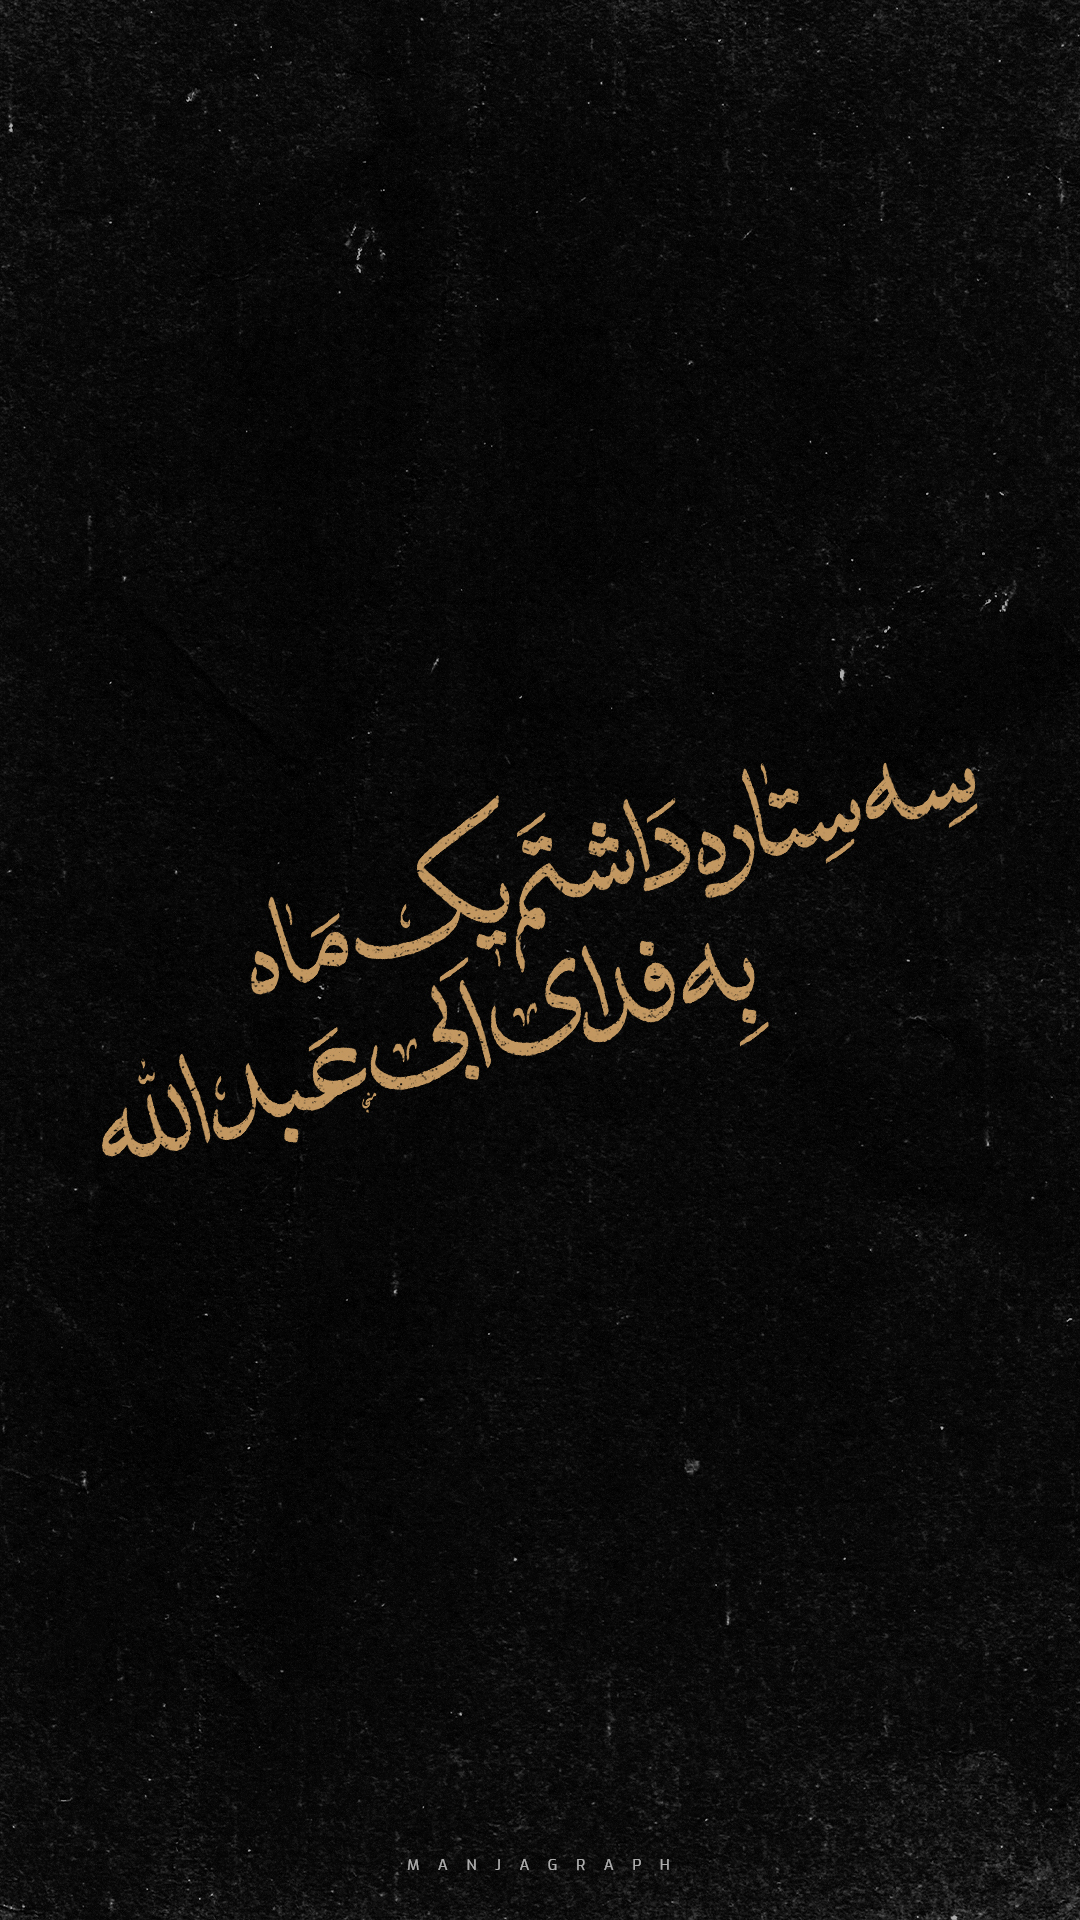 سِه سِتاره دَاشتَم یک مَاه
بِه فدای اَبی عَبدالله
MANJAGRAPH